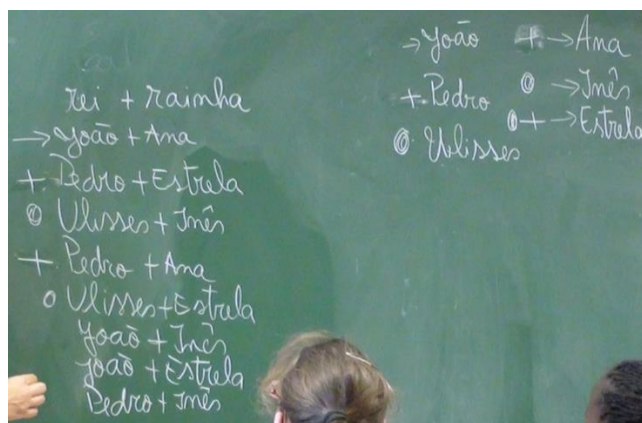 rei + rainha
→ João + Ana
+ Pedro + Estrela
O Ulisses + Inês
+ Pedro + Ana
o Ulisses + Estrela
João + Inês
João + Estrela
Pedro + Inês
→ João + → Ana
+ Pedro O → Inês
O Ulisses O + → Estrela